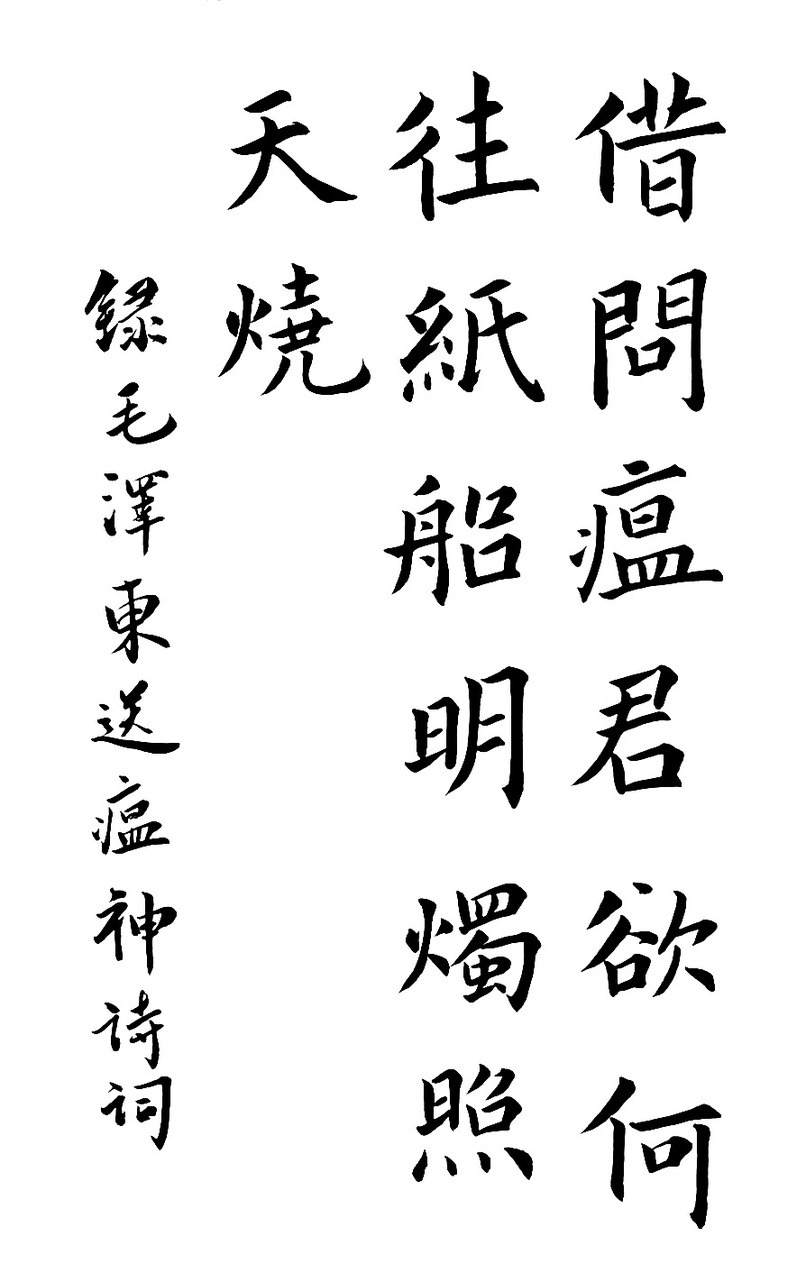 借問瘟君欲何
往紙船明燭照
天燒
録毛澤東送瘟神詩词